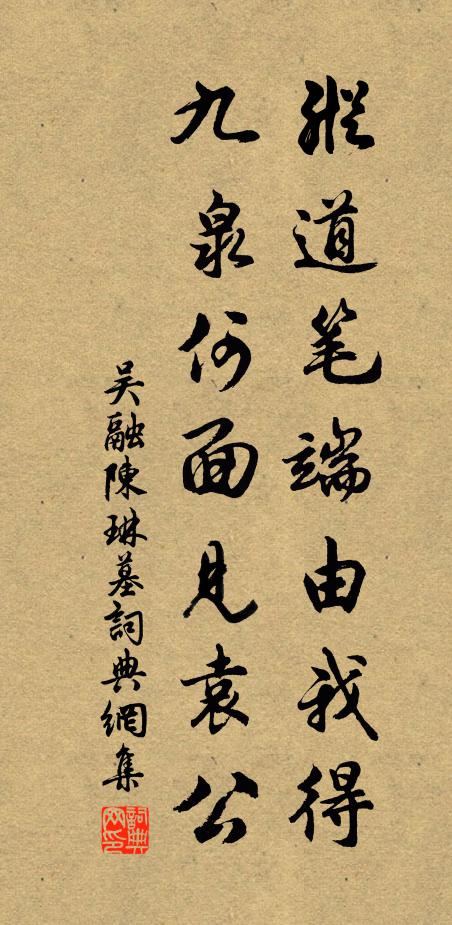 縱道笔端由我得
九泉何面見袁公
吴融陳琳墓詞典網集
詞典網印